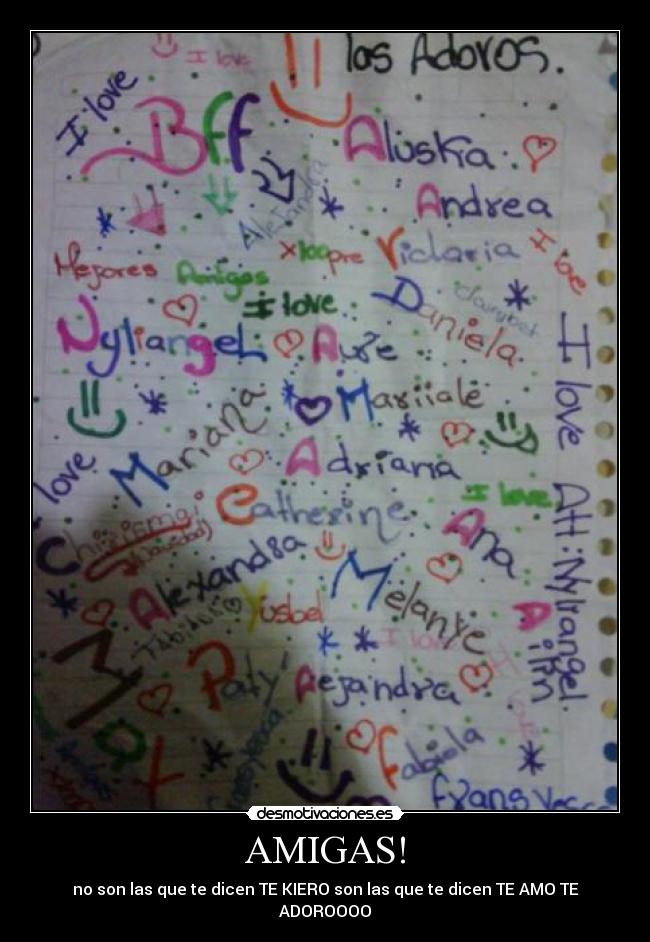 las Adoros.
I love
I love
Bff
Aluska
Alejandra
Andrea
Mejores Amigas
x100pre
Victoria
I love
I love
Daniela
Nyliangel
Aure
Mariiale
I love
Mariana
Adriana
love
I love
Catherine
Ana
Att: Nyliangel
Alexandra
Melanye
Yusbel
I love
Paty
Aejandra
Fabiola
desmotivaciones.es
AMIGAS!
no son las que te dicen TE KIERO son las que te dicen TE AMO TE
ADOROOOO